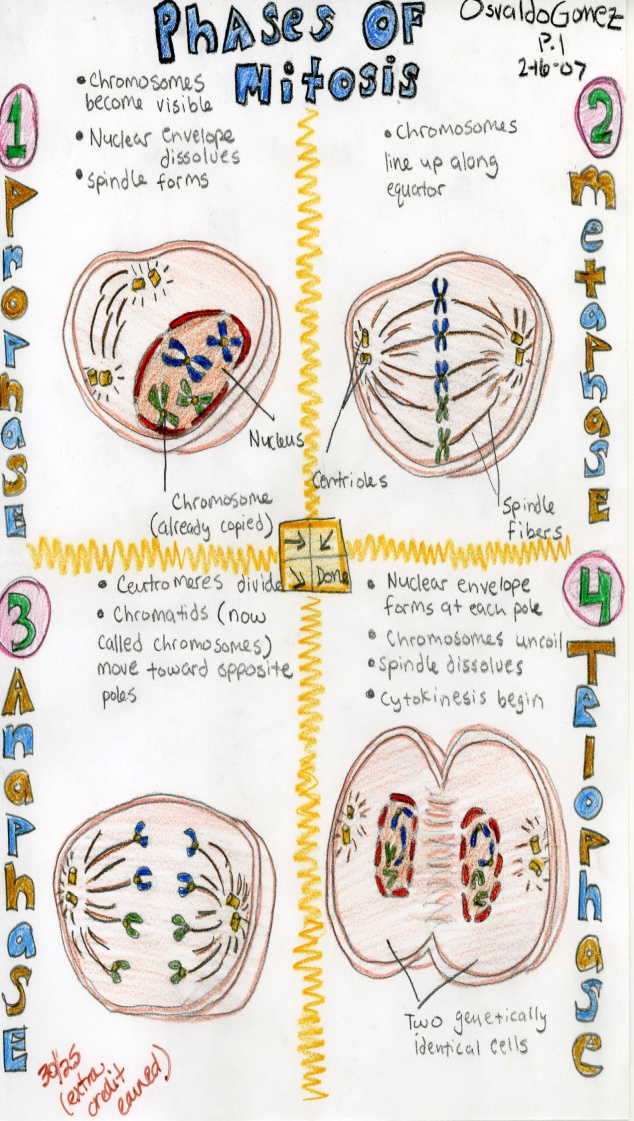 Phases of
Mitosis
Osvaldo Gomez
P.1
2-16-07
1
Prophase
• Chromosomes
become visible
• Nuclear Envelope
dissolves
• Spindle forms
Nucleus
Chromosome
(already copied)
2
Metaphase
• Chromosomes
line up along
equator
Centrioles
Spindle
fibers
Done
3
Anaphase
• Centromeres divide
• Chromatids (now
called chromosomes)
move toward opposite
poles
4
Telophase
• Nuclear envelope
forms at each pole
• Chromosomes uncoil
• Spindle dissolves
• Cytokinesis begin
Two genetically
identical cells
30/25
(extra
credit
earned!)